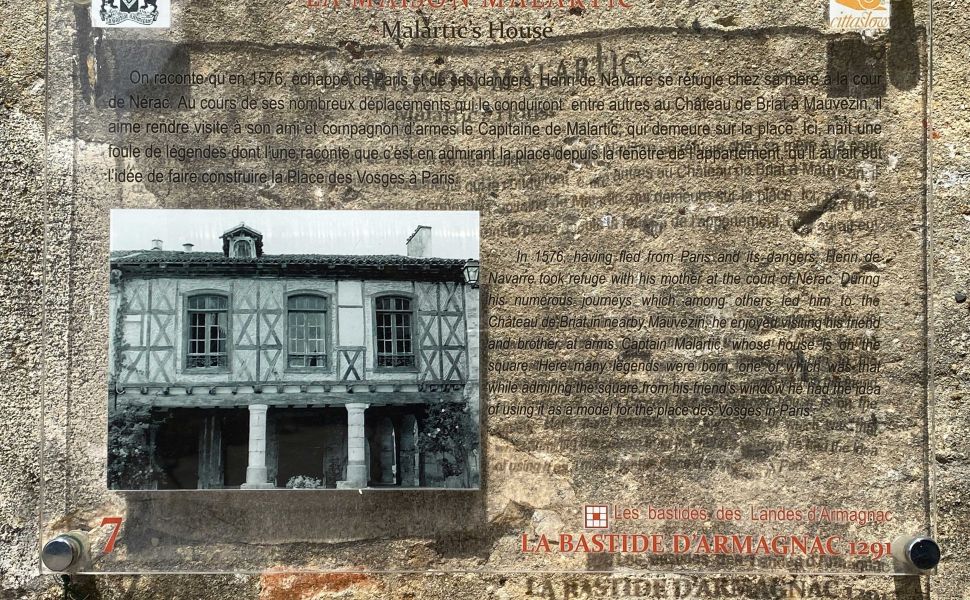 LA MAISON MALARTIC
Malartic's House
cittaslow
On raconte qu'en 1576, échappé de Paris et de ses dangers, Henri de Navarre se réfugie chez sa mère à la cour
de Nérac. Au cours de ses nombreux déplacements qui le conduiront entre autres au Château de Briat à Mauvezin, il
aime rendre visite à son ami et compagnon d'armes le Capitaine de Malartic, qui demeure sur la place. Ici, naît une
foule de légendes dont l'une raconte que c'est en admirant la place depuis la fenêtre de l'appartement, qu'il aurait eut
l'idée de faire construire la Place des Vosges à Paris.
In 1576, having fled from Paris and its dangers, Henri de
Navarre took refuge with his mother at the court of Nérac. During
his numerous journeys, which among others led him to the
Château de Briat in nearby Mauvezin, he enjoyed visiting his friend
and brother at arms Captain Malartic, whose house is on the
square. Here many legends were born, one of which was that
while admiring the square from his friend's window he had the idea
of using it as a model for the place des Vosges in Paris.
7
Les bastides des Landes d'Armagnac
LA BASTIDE D'ARMAGNAC 1291